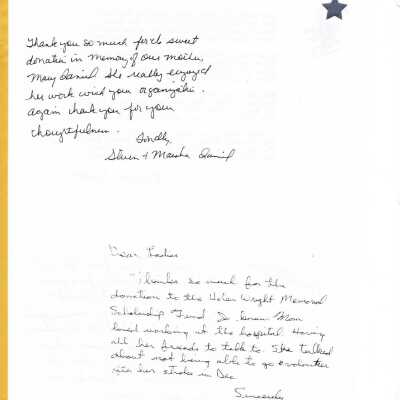 Thank you so much for the sweet
donation in memory of our mother,
Mary Daniel. She really enjoyed
her work with your organization.
Again thank you for your
thoughtfulness.
Fondly,
Steven + Marsha Daniel
Dear Ladies
Thanks so much for the
donation to the Helen Wright Memorial
Scholarship Fund. I know Mom
loved working at the hospital. Having
all her friends to talk to. She talked
about not being able to go volunteer
her stroke in Dec
Sincerely